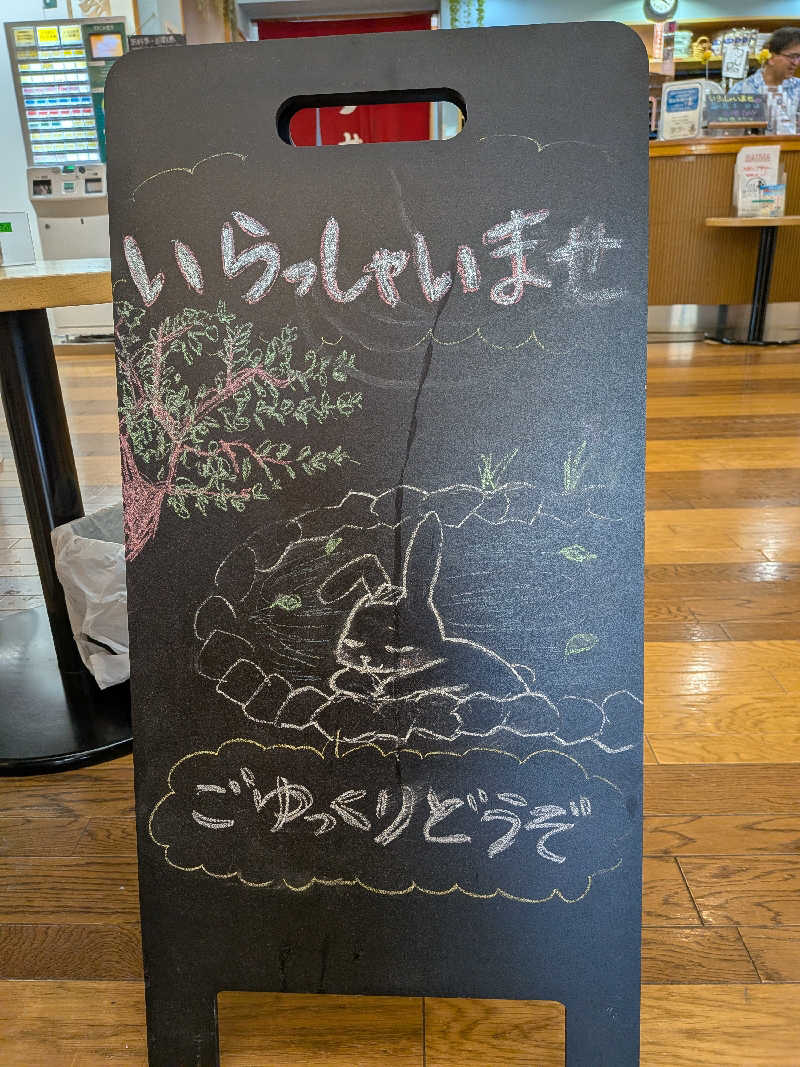 いらっしゃいませ
ごゆっくりどうぞ